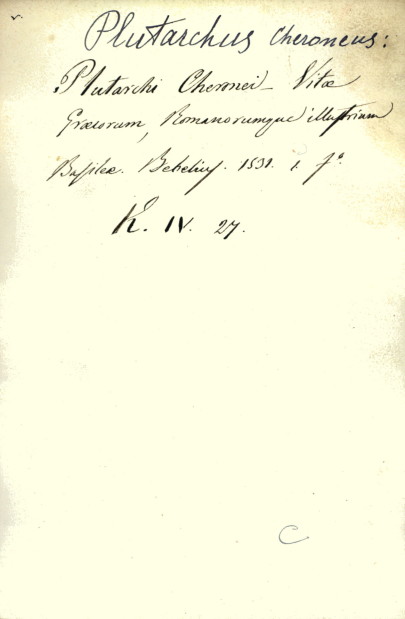 v.
Plutarchus Cheroneus:
Plutarchi Cheronei - Vitæ
Græcorum, Romanorumque illustrium
Basileæ. Bebelius. 1531. 1. fº.
K. IV. 27.
C